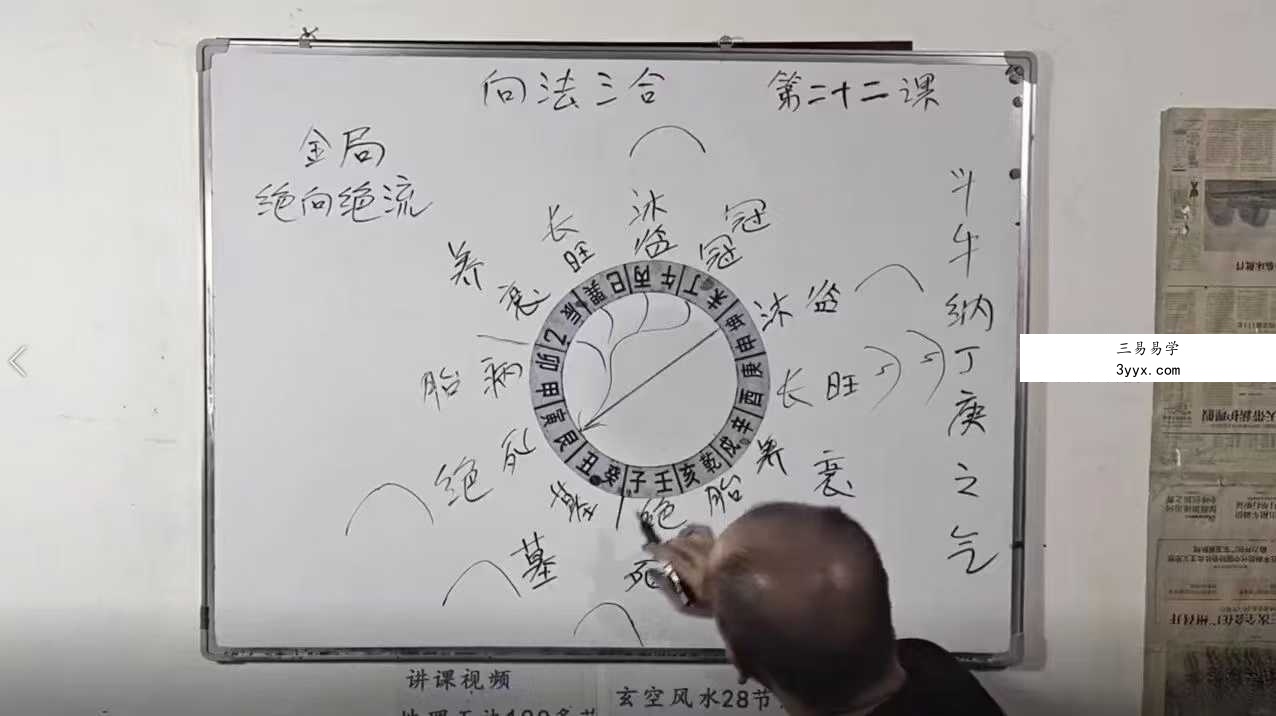 向法三合 第二十二课
金局
绝向绝流
斗牛纳丁庚之气
长 沐 冠
旺 临 冠
养 衰
沐 临
胎 病
长 旺
绝 死
养 衰
墓 绝 胎
墓 死
丙午丁未坤申庚酉辛戌乾亥壬子癸丑艮寅甲卯乙辰巽巳
三易易学
3yyx.com
讲课视频
玄空风水28节